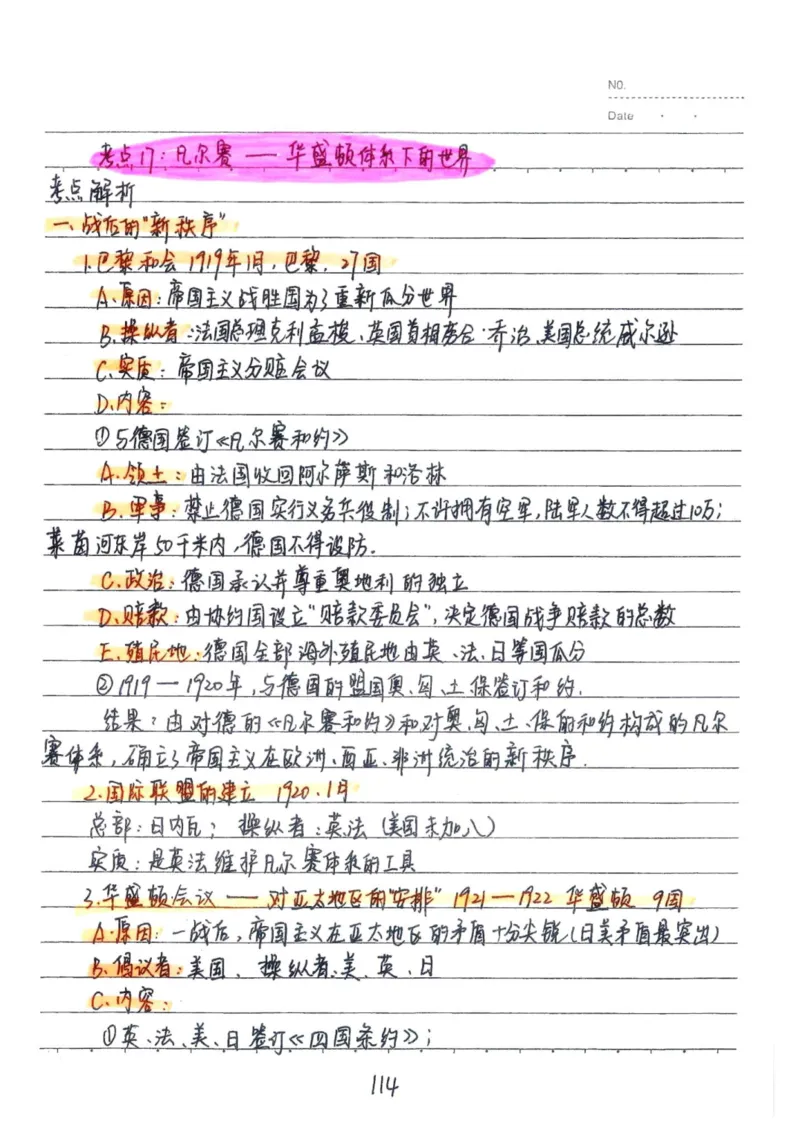 NO.
Date
考点17：凡尔赛——华盛顿体系下的世界
考点解析
一、战后的"新秩序"
1.巴黎和会 1919年1月，巴黎，27国
A、原因：帝国主义战胜国为了重新瓜分世界
B、操纵者：法国总理克利孟梭、英国首相劳合·乔治、美国总统威尔逊
C、实质：帝国主义分赃会议
D、内容：
①与德国签订《凡尔赛和约》
A、领土：由法国收回阿尔萨斯和洛林
B、军事：禁止德国实行义务兵役制；不许拥有空军，陆军人数不得超过10万；
莱茵河东岸50千米内，德国不得设防．
C、政治：德国承认并尊重奥地利的独立
D、赔款：由协约国设立"赔款委员会"，决定德国战争赔款的总数
E、殖民地：德国全部海外殖民地由英、法、日等国瓜分
②1919—1920年，与德国的盟国奥、匈、土、保签订和约．
结果：由对德的《凡尔赛和约》和对奥、匈、土、保的和约构成的凡尔
赛体系，确立了帝国主义在欧洲、西亚、非洲统治的新秩序．
2.国际联盟的建立 1920.1月
总部：日内瓦； 操纵者：英法（美国未加入）
实质：是英法维护凡尔赛体系的工具
3.华盛顿会议——对亚太地区的"安排" 1921—1922 华盛顿 9国
A、原因：一战后，帝国主义在亚太地区的矛盾十分尖锐（日美矛盾最突出）
B、倡议者：美国、操纵者：美、英、日
C、内容：
①英、法、美、日签订《四国条约》；
114